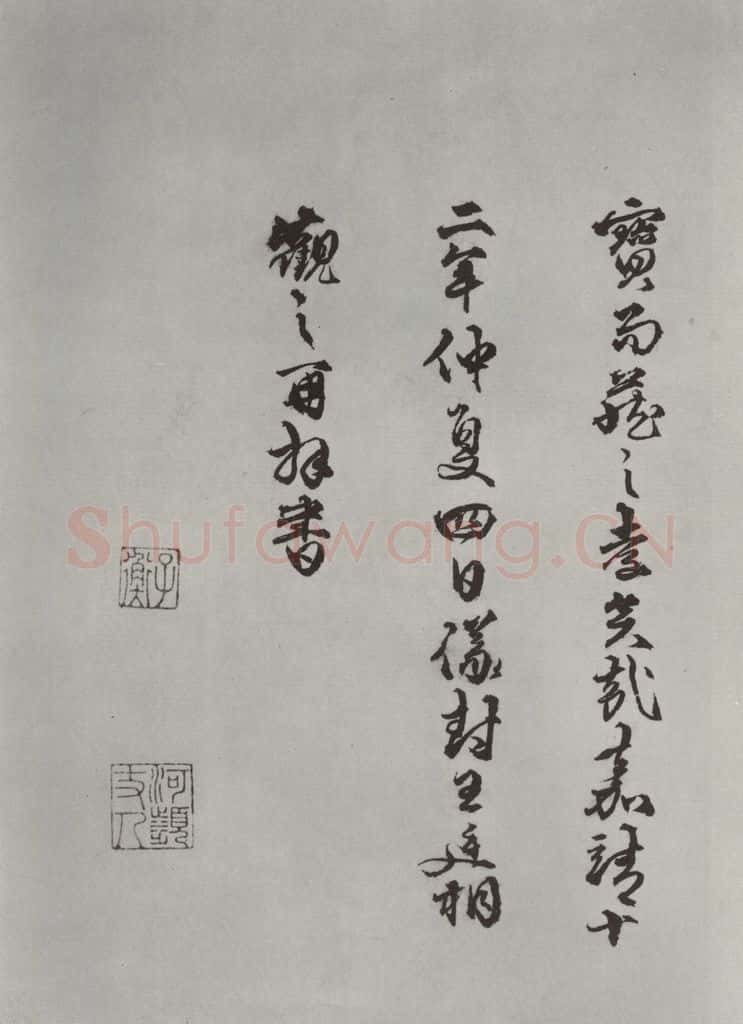 寶而藏之孝矣哉嘉靖十
二年仲夏四日儀封王廷相
觀之再拜書
子衡
河濱丈人
Shufawang.CN